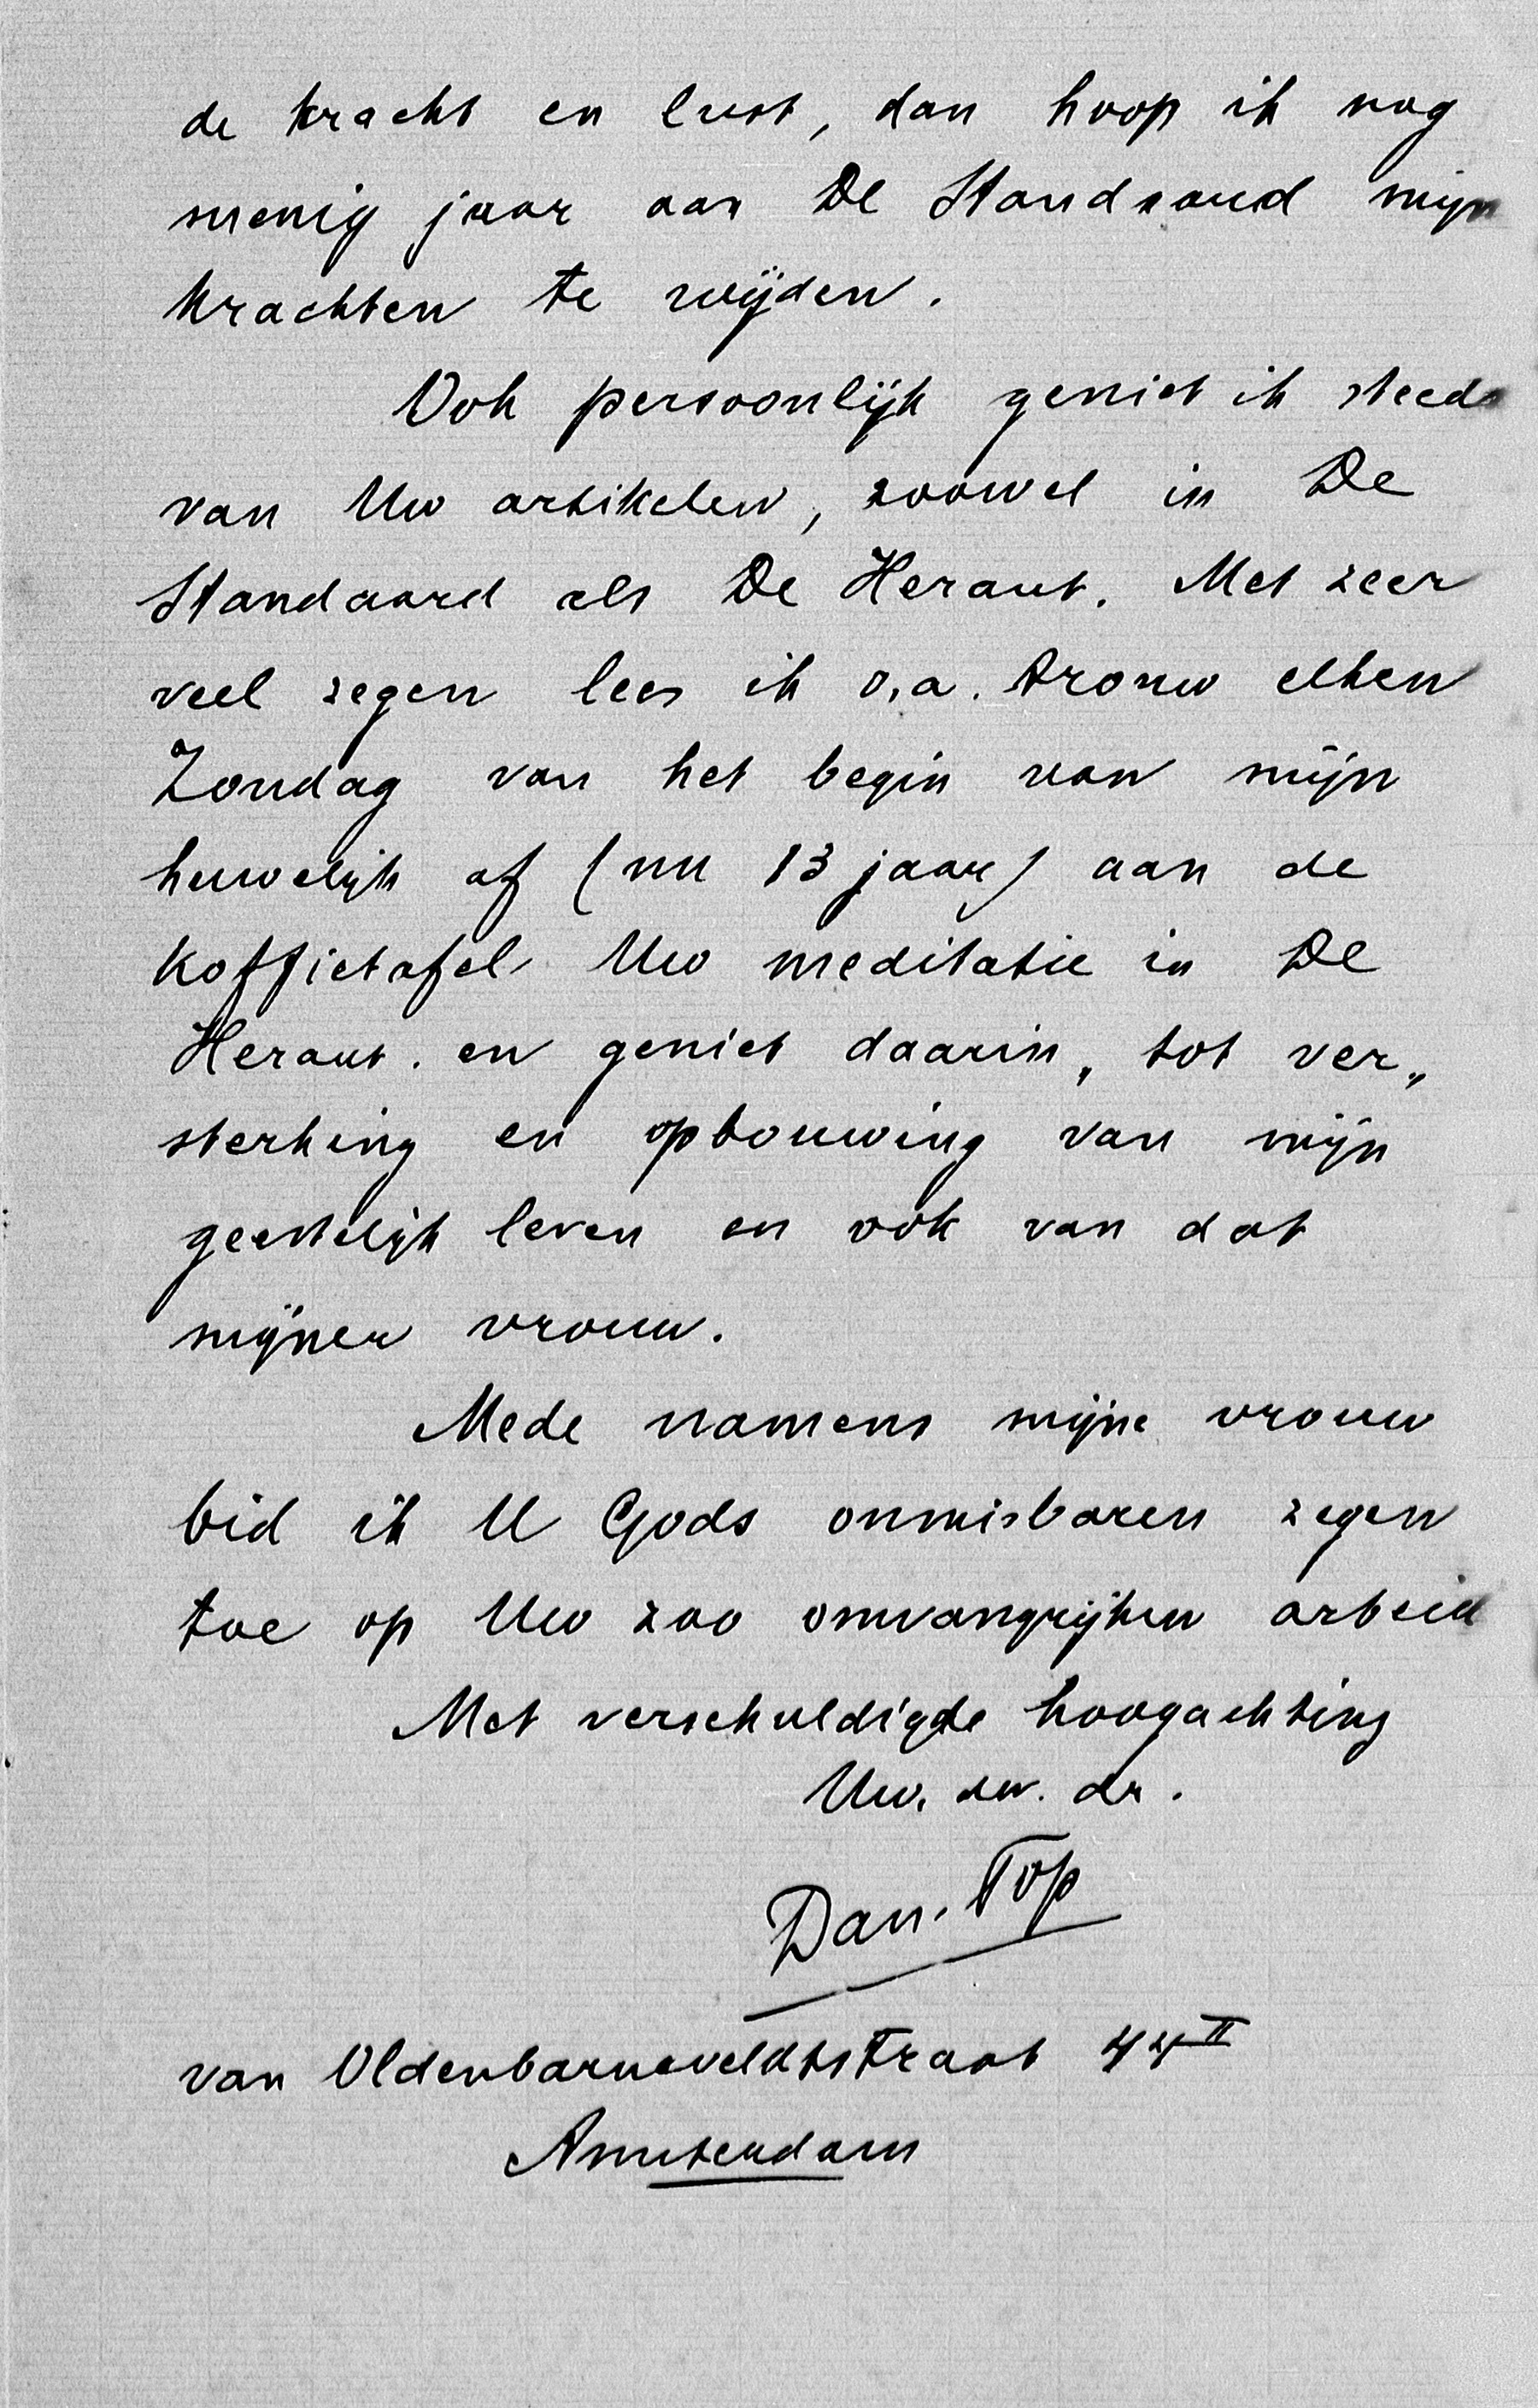 de kracht en lust, dan hoop ik nog
menig jaar aan De Standaard mijn
krachten te wijden.
Ook persoonlijk geniet ik steeds
van Uw artikelen, zoowel in De
Standaard als De Heraut. Met zeer
veel zegen lees ik o.a. trouw elken
Zondag van het begin van mijn
huwelijk af (nu 13 jaar) aan de
koffietafel Uw meditatie in De
Heraut. en geniet daarin, tot ver„
sterking en opbouwing van mijn
geestelijk leven en ook van dat
mijner vrouw.
Mede namens mijne vrouw
bid ik U Gods onmisbaren zegen
toe op Uw zoo omvangrijken arbeid
Met verschuldigde hoogachting
Uw. dw. dr.
Dan. Top
van Oldenbarneveldtstraat 44 II
Amsterdam